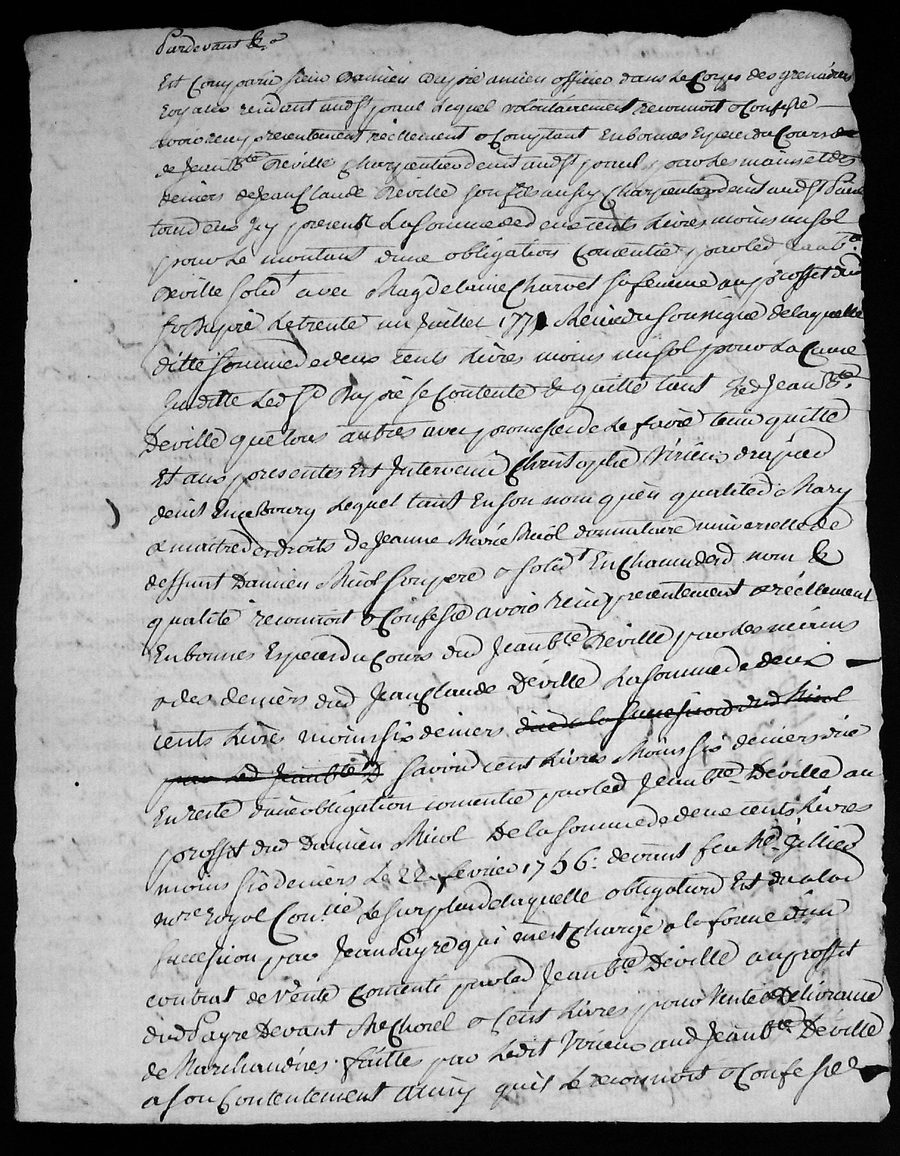 Pardevant &c
Est Comparu sieur Damien Dupré ancien officier dans le Corps des grenadiers
royaux residant aud st paul lequel volontairement reconnoit & Confesse
avoir reçu presentement réellement & Comptant En bonnes Especes du Cours
de Jean Bte Déville Charpentier dud st paul, par les mains et des
deniers de Jean Claude Déville son fils aussy Charpentier aud st Paul
icy present La somme de deux cents Livres moins un sol
pour Le montant d'une obligation Consentie par led Jean Bte
Déville solidt avec Magdelaine Charvet sa femme au proffit dud
sr Dupré Le trente un Juillet 177 reçu du soussigné de laquelle
ditte somme de deux cents Livres moins un sol pour La Cause
susditte Led sr Dupré se Contente & quitte tant led Jean Bte
Déville que tous autres avec promesse de Le faire tenir quitte
Et aux presentes Est Intervenu Christophle Virieux
dud Bourg Lequel tant En son nom qu'en qualité de Mary
& maitre des droits de Jeanne Marie Micol donnataire universelle de
deffunt Damien Micol son pere & solidt En Chaun desd nom &
qualité reconnoit & Confesse avoir reçu presentement & réellement
En bonnes Especes du Cours dud Jean Bte Déville par les mains
& des deniers dud Jean Claude Déville La somme de deux
cents Livres moins six deniers due a la succession dud Micol
par led Jean Bte D savoir cent Livres Moins six deniers due
En reste d'une obligation consentie par led Jean Bte Déville au
proffit dud Damien Micol De la somme de deux cents Livres
moins six deniers Le 22 fevrier 1756. devant feu Me Gillier
nore Royal Le surplus de laquelle obligation Est du a lad
succession par Jean Payre qui en est Chargé a la forme d'un
contrat de Vente Consenti par led Jean Bte Déville au proffit
dud Payre Devant Me Chorel & Cent Livres pour Vente & Delivrance
de Marchandises faittes par Ledit Virieux aud Jean Bte Déville
a son Contentement ainsy qu'il Le reconnoit & Confesse